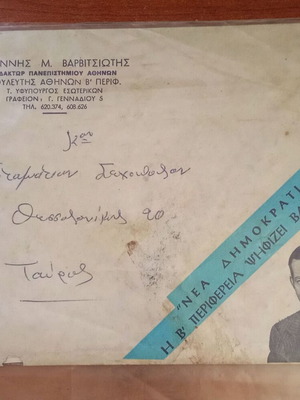 ΑΝΝΗΣ Μ. ΒΑΡΒΙΤΣΙΩΤΗΣ
ΔΑΚΤΩΡ ΠΑΝΕΠΙΣΤΗΜΙΟΥ ΑΘΗΝΩΝ
ΟΥΛΕΥΤΗΣ ΑΘΗΝΩΝ Β' ΠΕΡΙΦ.
Τ. ΥΦΥΠΟΥΡΓΟΣ ΕΣΩΤΕΡΙΚΩΝ
ΓΡΑΦΕΙΟΝ: Γ. ΓΕΝΝΑΔΙΟΥ 5
ΤΗΛ. 620.374, 608.626
Κον
Θεσσαλονίκης 90
Ταύρος
"ΝΕΑ ΔΗΜΟΚΡΑΤΙ
Η Β' ΠΕΡΙΦΕΡΕΙΑ ΨΗΦΙΖΕΙ ΒΑ